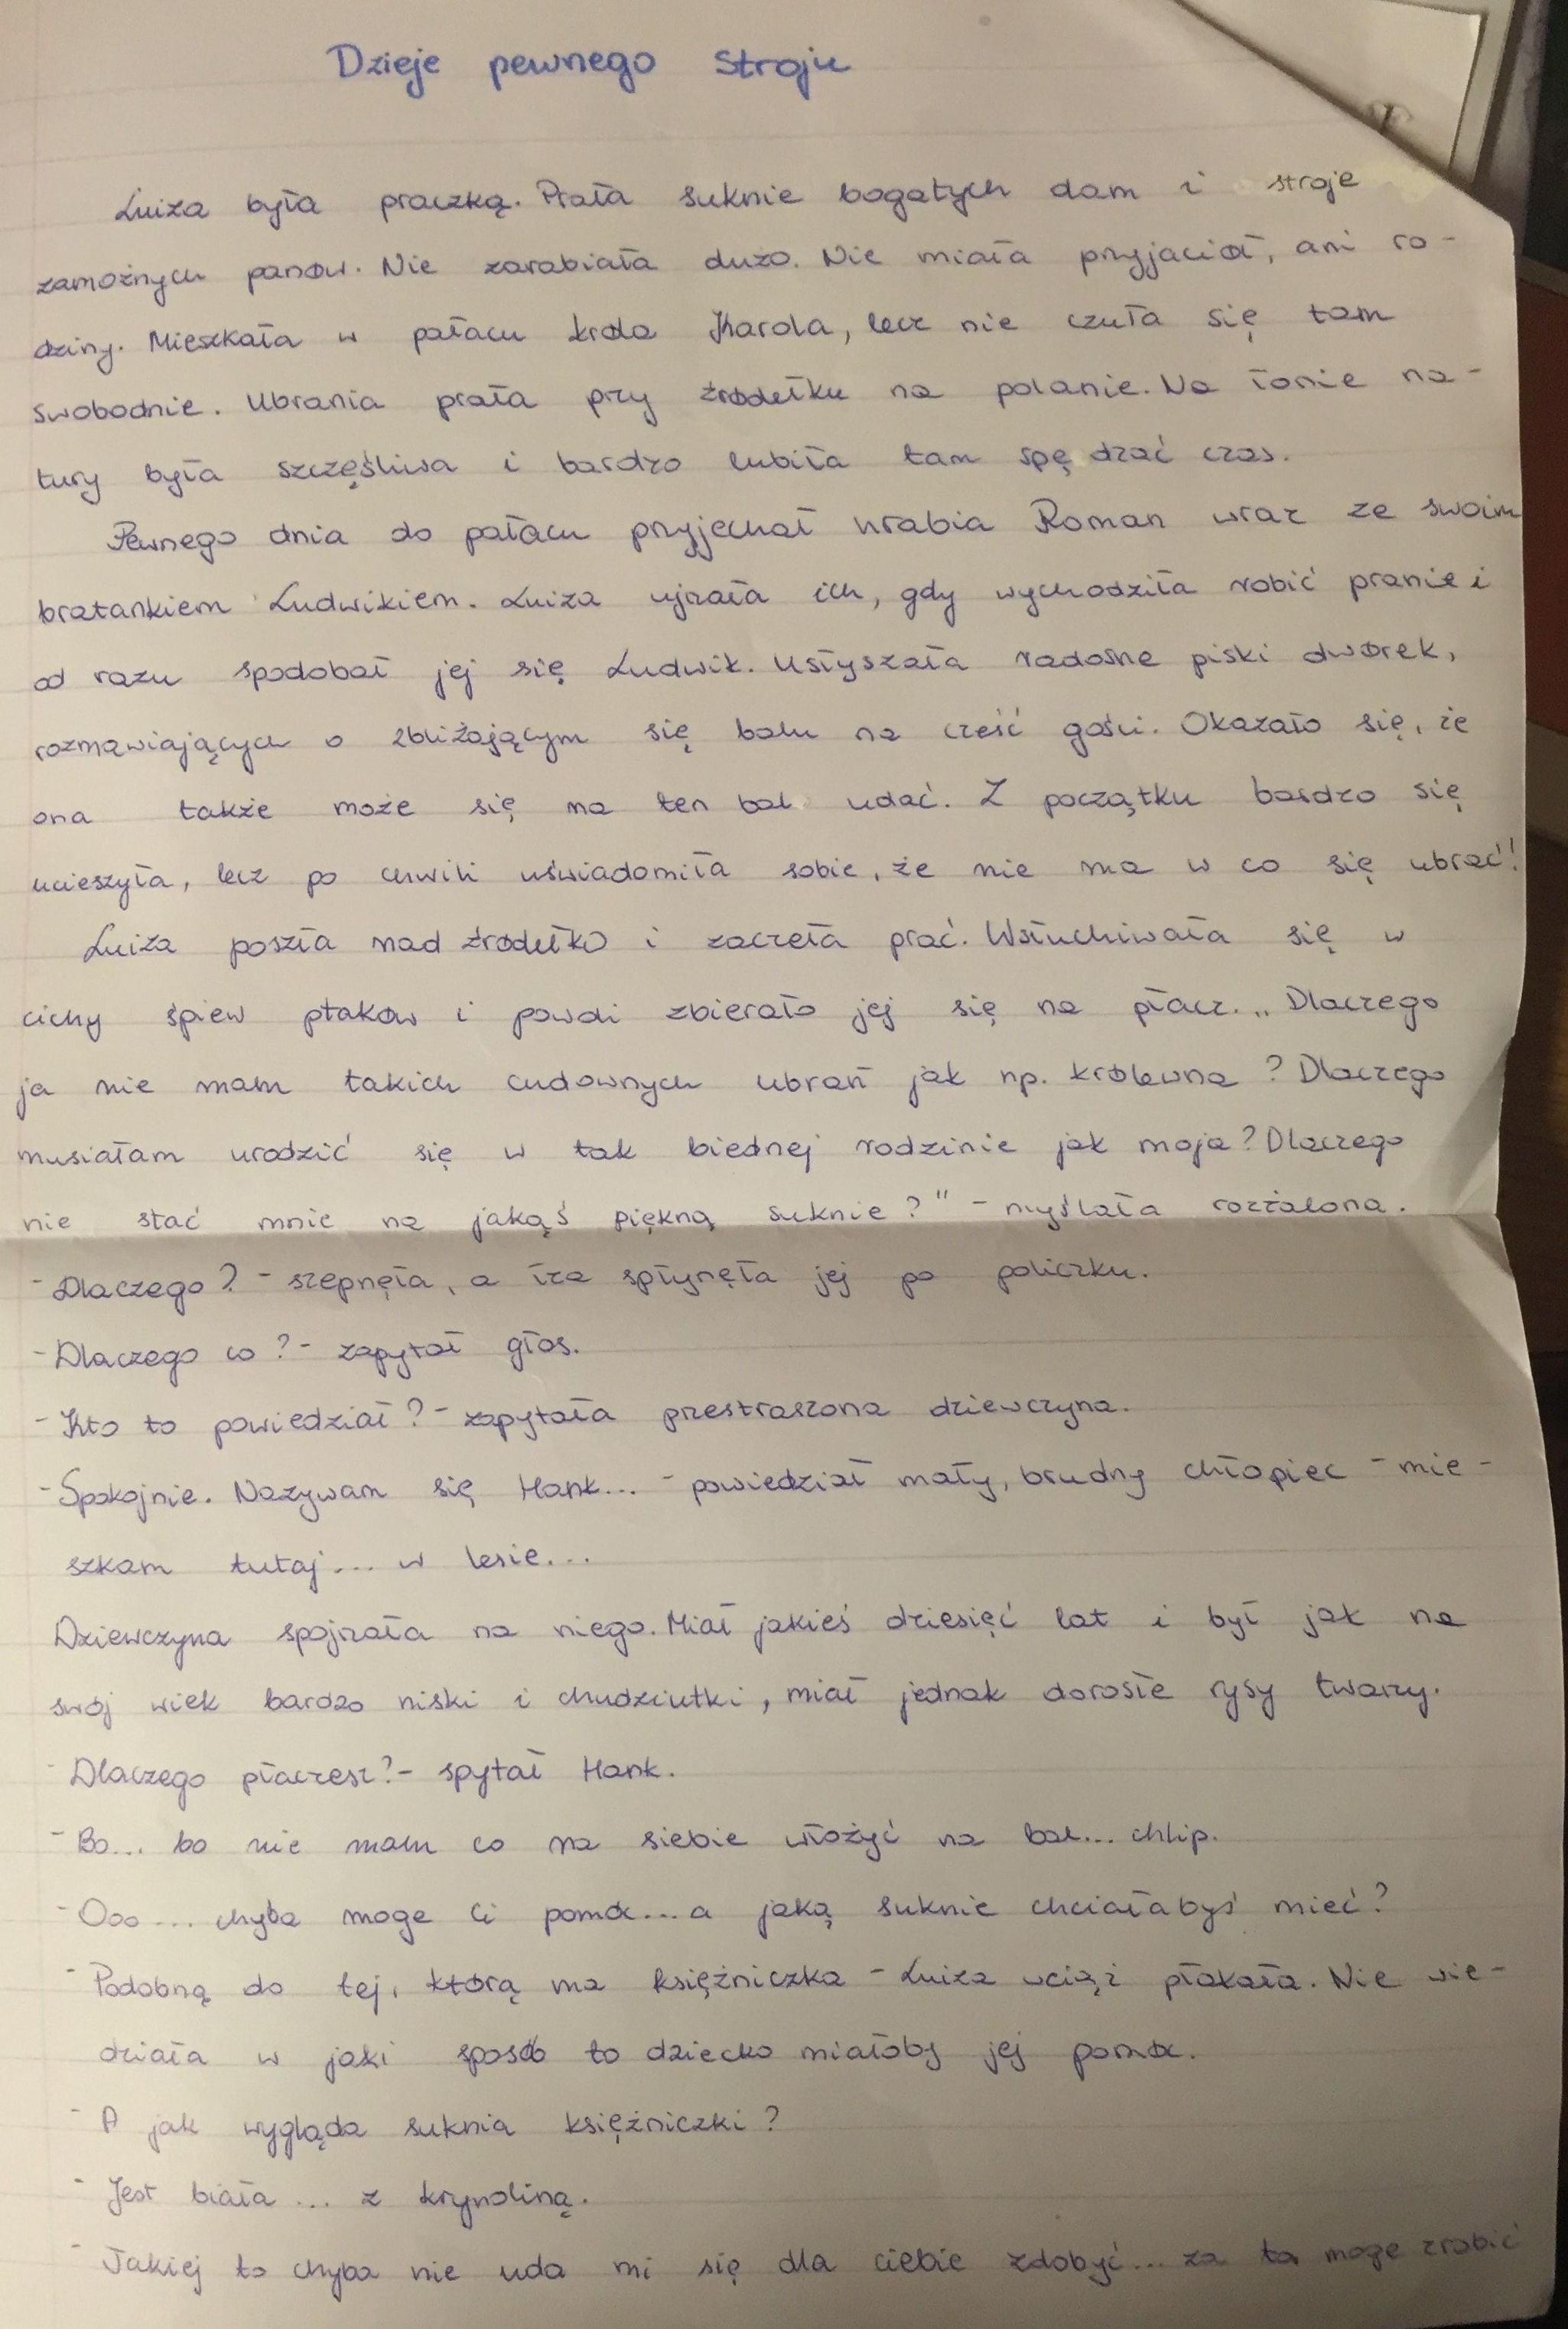 Dzieje pewnego stroju
Luiza była praczką. Prała suknie bogatych dam i stroje
zamożnych panów. Nie zarabiała dużo. Nie miała przyjaciół, ani ro-
dziny. Mieszkała w pałacu króla Karola, lecz nie czuła się tam
swobodnie. Ubrania prała przy źródełku na polanie. Na łonie na-
tury była szczęśliwa i bardzo lubiła tam spędzać czas.
Pewnego dnia do pałacu przyjechał hrabia Roman wraz ze swoim
bratankiem Ludwikiem. Luiza ujrzała ich, gdy wychodziła robić pranie i
od razu spodobał jej się Ludwik. Usłyszała radosne piski dwórek,
rozmawiających o zbliżającym się balu na cześć gości. Okazało się, że
ona także może się na ten bal udać. Z początku bardzo się
ucieszyła, lecz po chwili uświadomiła sobie, że nie ma w co się ubrać!
Luiza poszła nad źródełko i zaczęła prać. Wsłuchiwała się w
cichy śpiew ptaków i powoli zbierało jej się na płacz. „Dlaczego
ja nie mam takich cudownych ubrań jak np. królewna? Dlaczego
musiałam urodzić się w tak biednej rodzinie jak moja? Dlaczego
nie stać mnie na jakąś piękną suknie?" - myślała rozżalona.
- Dlaczego? - szepnęła, a łza spłynęła jej po policzku.
- Dlaczego co? - zapytał głos.
- Kto to powiedział? - zapytała przestraszona dziewczyna.
- Spokojnie. Nazywam się Hank... - powiedział mały, brudny chłopiec - mie-
szkam tutaj... w lesie...
Dziewczyna spojrzała na niego. Miał jakieś dziesięć lat i był jak na
swój wiek bardzo niski i chudziutki, miał jednak dorosłe rysy twarzy.
- Dlaczego płaczesz? - spytał Hank.
- Bo... bo nie mam co na siebie włożyć na bal... chlip.
- Ooo... chyba moge Ci pomóc... a jaką suknie chciałabyś mieć?
- Podobną do tej, którą ma księżniczka - Luiza wciąż płakała. Nie wie-
działa w jaki sposób to dziecko miałoby jej pomóc.
- A jak wygląda suknia księżniczki?
- Jest biała... z krynoliną.
- Takiej to chyba nie uda mi się dla ciebie zdobyć... za to moge zrobić